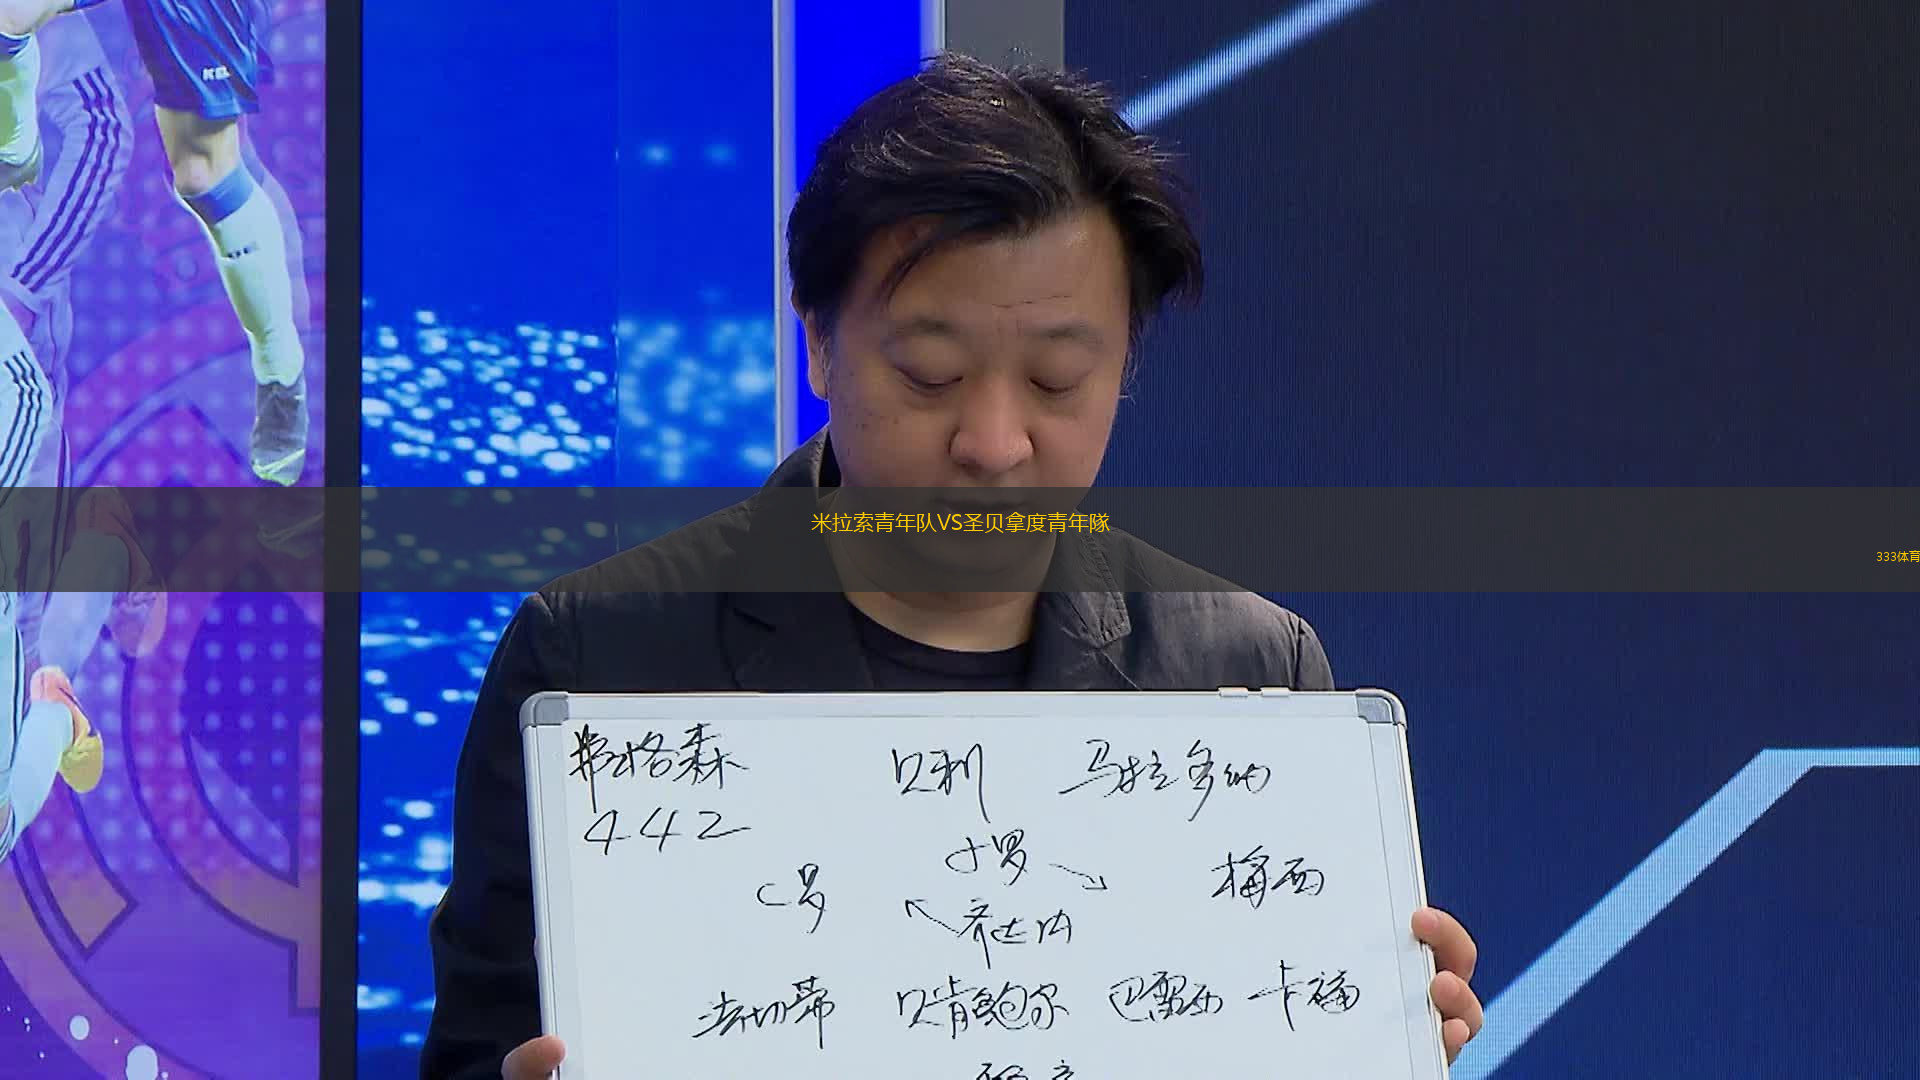 米拉索青年队VS圣贝拿度青年隊
333体育
弗格森 贝利 马拉多纳
442
小罗
C罗 梅西
齐达内
法切蒂 贝肯鲍尔 巴雷西 卡福